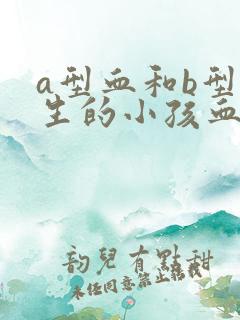 a型血和b型
生的小孩血
韵兒有點甜
未任同意禁止轉載